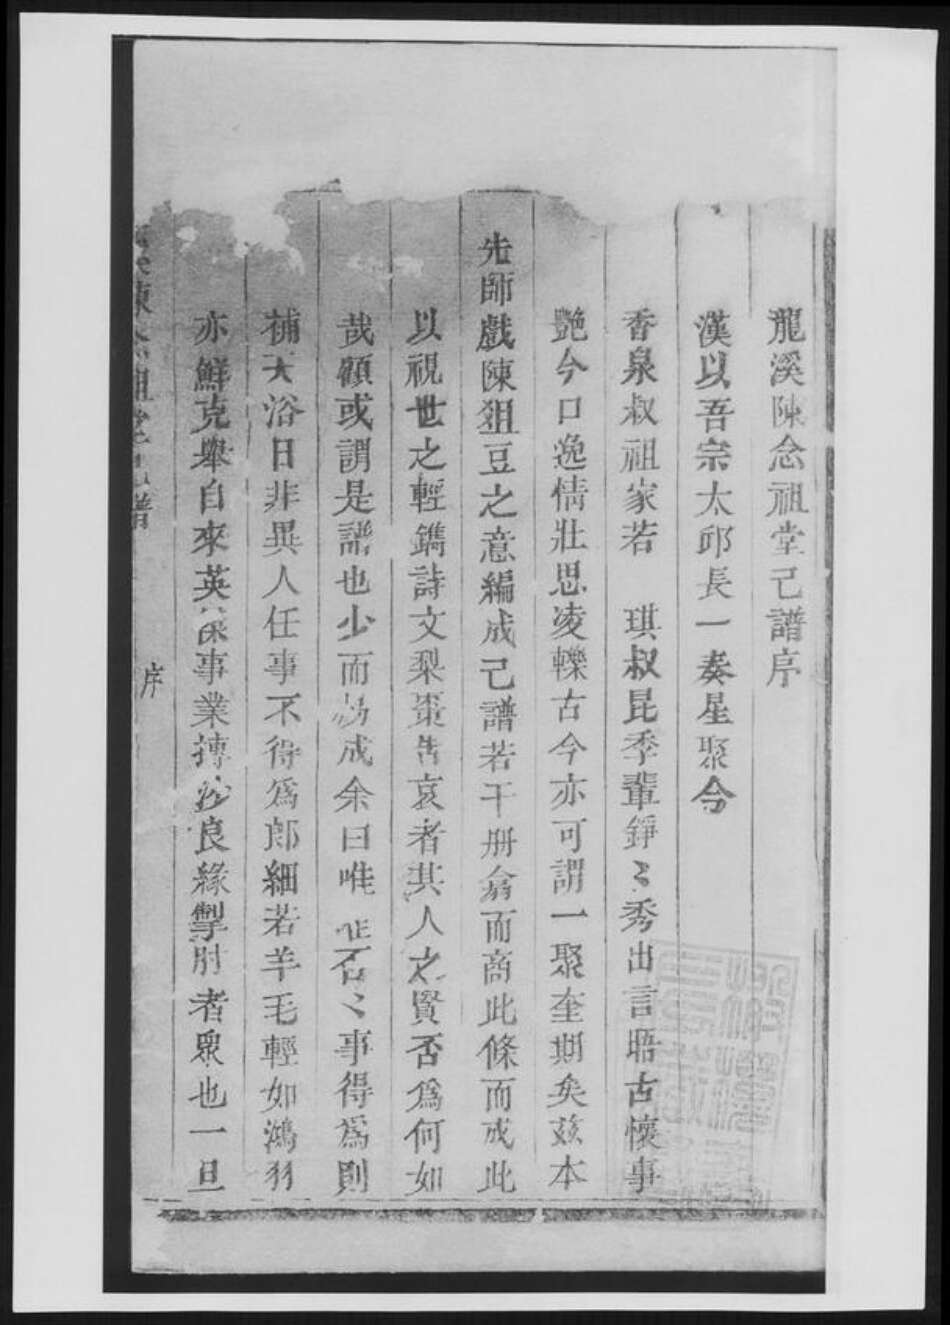 龍溪陳念祖堂己譜序
漢以吾宗太邱長一奏星聚今
香泉叔祖家若　琪叔昆季輩錚〻秀出言晤古懷事
艷今口逸情壯思凌轢古今亦可謂一聚奎期矣茲本
先師戲陳狙豆之意編成己譜若干册翕而商此條而成此
以視世之輕鐫詩文梨棗告哀者其人之賢否為何如
哉顧或謂是譜也少而易成余曰唯唯否〻事得為則
補天浴日非異人任事不得為郎細若羊毛輕如鴻羽
亦鮮克舉自來英深事業摶沙良緣掣肘者眾也一旦
陳念祖堂己譜
序